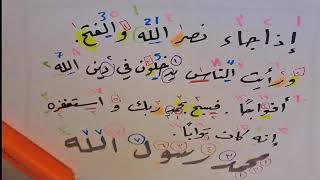 إذا جاء نصر الله والفتح.
ورأيت الناس يدخلون في دين الله
أفواجًا. فسبح بحمد ربك و استغفره
إنه كان توابًا.
محمد رسول الله